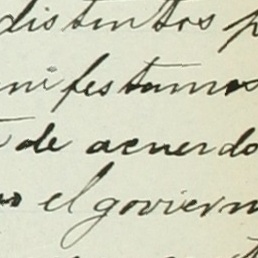 distintos p
nifestamos
de acuerdo
el goviern